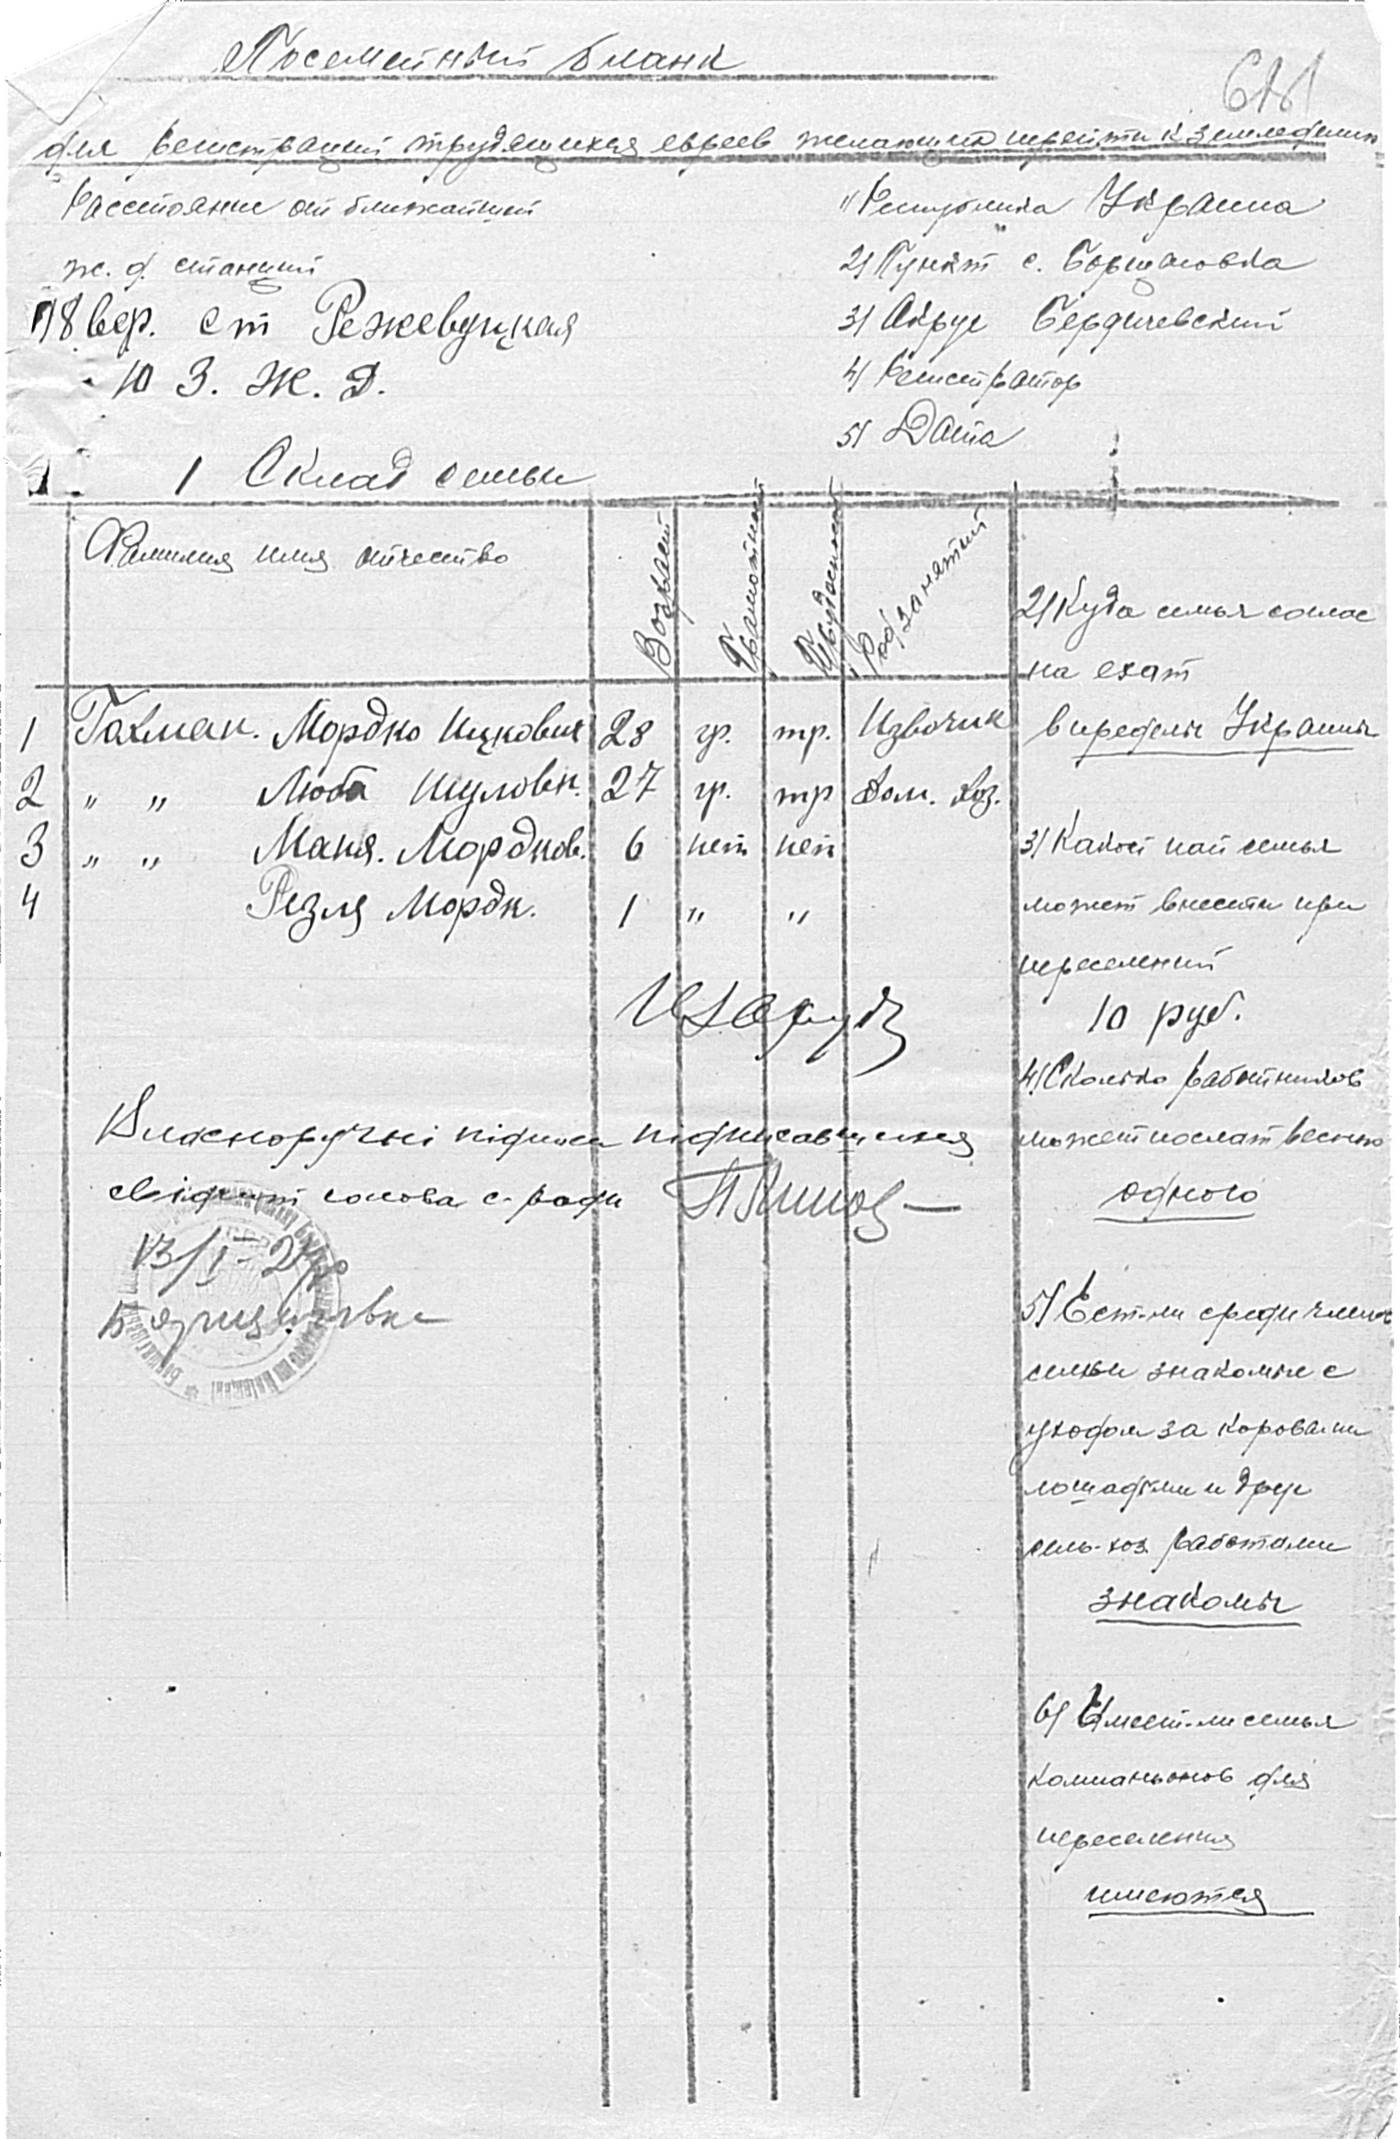 Посемейный бланк
681
для регистраций трудящихся евреев желающих перейти к земледелию
Расстояние от ближайший
ж. д. станций
18 вер. ст Режевуцкая
Ю З. Ж. Д.
1/ Республика Украина
2/ Пункт с. Борщаговка
3/ Округ Бердичевский
4/ Регистратор
5/ Дата
1 Склад семьи
Фамилия имя отчество
Возраст
Грамотность
Трудоспособ
Род занятий
1 Гахман. Мордко Ицкович 28 гр. тр. Извощик
2 " " Люба Шуловн. 27 гр. тр Дом. хоз.
3 " " Маня. Мордков. 6 нет нет
4 Резля Мордк. 1 " "
2/ Куда семья соглас
на ехат
в пределы Украины
3/ Какой пай семья
может внести при
переселений
10 руб.
4/ Сколько работников
может послат весною
одного
5/ Ест-ли среди членов
семьи знакомые с
уходом за коровами
лошадями и друг
сель-хоз работами
знакомы
6/ Имеет-ли семья
компаньонов для
переселения
имеются
Власноручні підписи підписавшихся
свідчит голова с-ради
13/I-27р